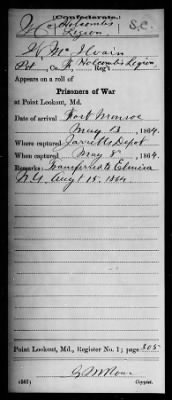 (Confederate.)
H Holcombe's Legion S.C.
H. McIlvain
Pvt Co. K Holcombe's Legion
Reg't
Appears on a roll of
Prisoners of War
at Point Lookout, Md.
Date of arrival Fort Monroe
May 13, 1864.
Where captured Jarretts Depot
When captured May 8, 1864.
Remarks: Transferred to Elmira
N.Y. Aug 15, 1864.
Point Lookout, Md., Register No. 1; page 305
Copyist.